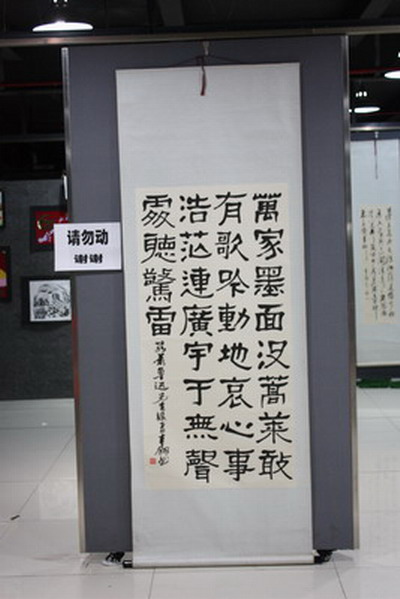 请勿动
谢谢
萬家墨面没蒿萊敢
有歌吟動地哀心事
浩茫連廣宇于無聲
處聽驚雷
魯迅先生